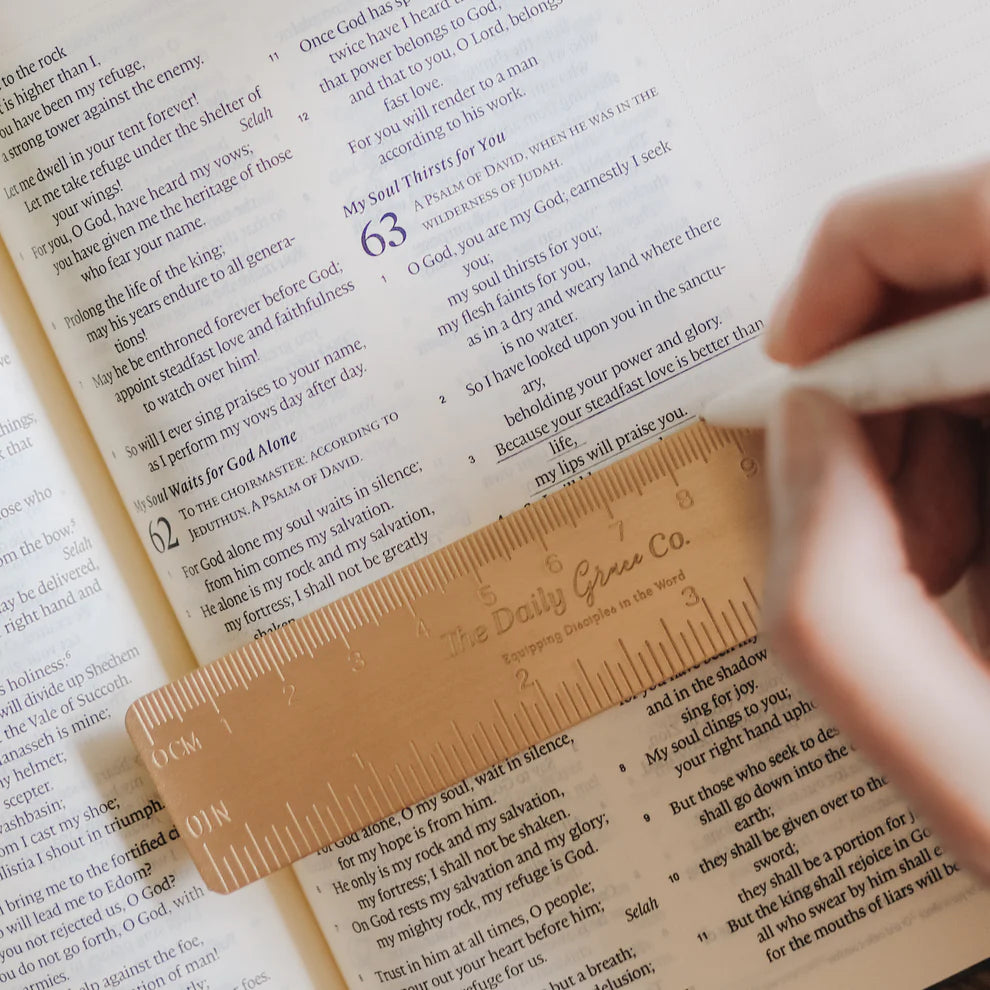 ose who
om the bow.5
Selah
may be delivered,
right hand and
s holiness:6
will divide up Shechem
the Vale of Succoth.
anasseh is mine;
y helmet;
scepter.
ashbasin;
I cast my shoe;
I shout in triumph.
bring me to the fortified
will lead me to Edom?
you not rejected us, O God?
do not go forth, O God, with
armies.
help against the foe,
tion of man!
foes.
to the rock
is higher than I,
ou have been my refuge,
a strong tower against the enemy.
Let me dwell in your tent forever!
Let me take refuge under the shelter of
your wings!
Selah
For you, O God, have heard my vows;
you have given me the heritage of those
who fear your name.
Prolong the life of the king;
may his years endure to all genera-
tions!
May he be enthroned forever before God;
appoint steadfast love and faithfulness
to watch over him!
So will I ever sing praises to your name,
as I perform my vows day after day.
My Soul Waits for God Alone
62
TO THE CHOIRMASTER: ACCORDING TO
JEDUTHUN. A PSALM OF DAVID.
For God alone my soul waits in silence;
from him comes my salvation.
He alone is my rock and my salvation,
my fortress; I shall not be greatly
shaken.
For God alone, O my soul, wait in silence,
for my hope is from him.
He only is my rock and my salvation,
my fortress; I shall not be shaken.
On God rests my salvation and my glory;
my mighty rock, my refuge is God.
Trust in him at all times, O people;
pour out your heart before him;
refuge for us.
Selah
but a breath;
delusion;
11 Once God has sp
twice have I heard t
that power belongs to God,
12 and that to you, O Lord, belongs
fast love.
For you will render to a man
according to his work.
My Soul Thirsts for You
63
A PSALM OF DAVID, WHEN HE WAS IN THE
WILDERNESS OF JUDAH.
1 O God, you are my God; earnestly I seek
you;
my soul thirsts for you;
my flesh faints for you,
as in a dry and weary land where there
is no water.
2 So I have looked upon you in the sanctu-
ary,
beholding your power and glory.
3 Because your steadfast love is better than
life,
my lips will praise you.
and in the shadow
sing for joy.
8 My soul clings to you;
your right hand upho
9 But those who seek to des
shall go down into the
earth;
10 they shall be given over to the
sword;
they shall be a portion for j
11 But the king shall rejoice in Go
all who swear by him shall e
for the mouths of liars will be
0 CM 1 2 3 4 5 6 7 8 9
The Daily Grace Co.
Equipping Disciples in the Word
0 IN 1 2 3